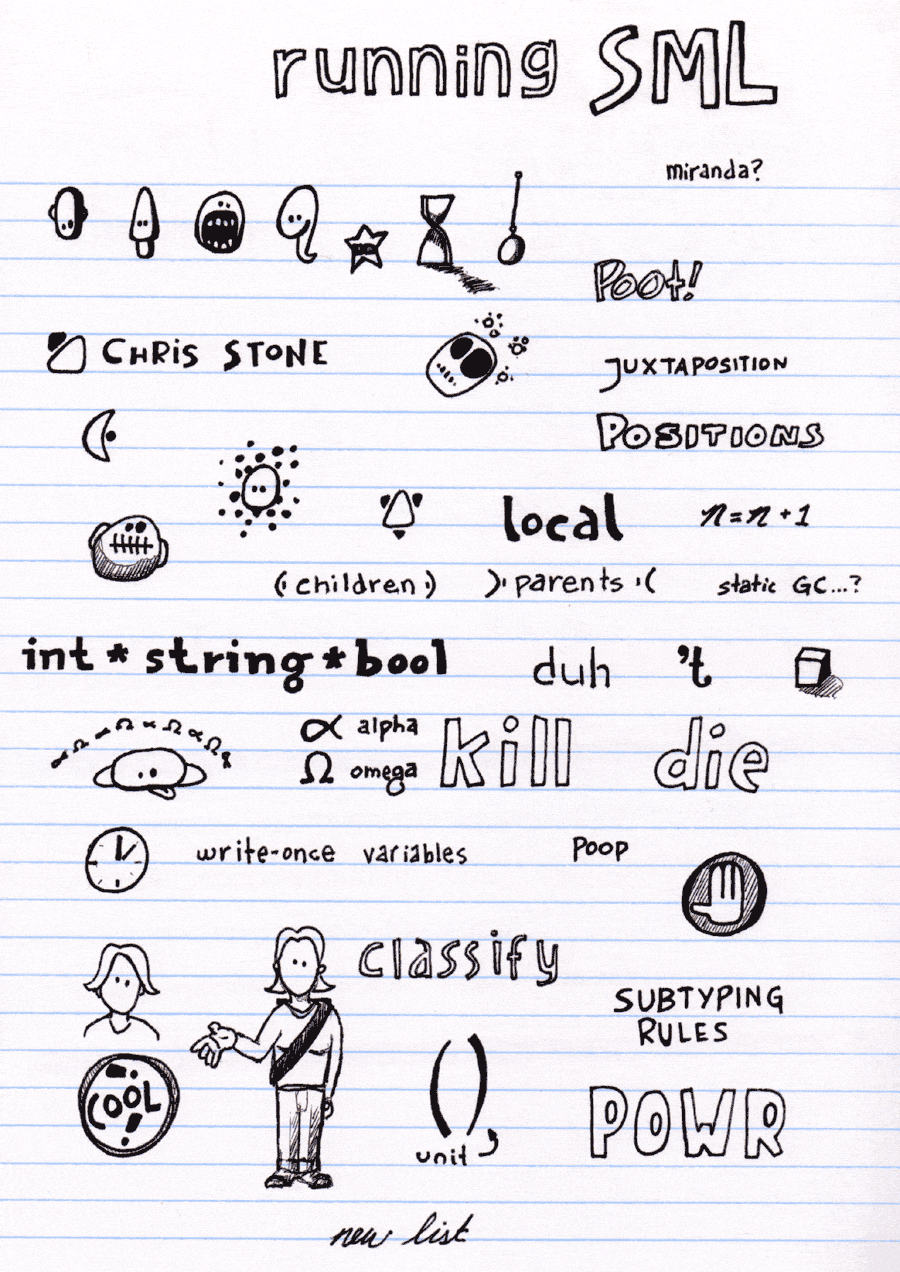 running SML
miranda?
Poot!
CHRIS STONE
JUXTAPOSITION
POSITIONS
local n=n+1
(: children :) ): parents :( static GC...?
int * string * bool duh 't
α Ω α Ω α Ω α Ω α
α alpha
Ω omega
kill die
write-once variables Poop
classify
SUBTYPING
RULES
COOL!
()
unit
POWR
new list